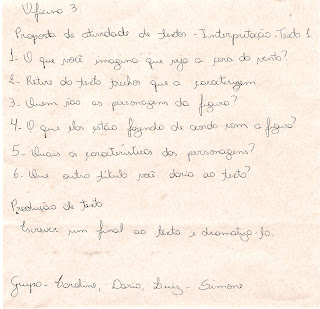 Oficina 3.
Proposta de atividade de textos - Interpretação. Texto 1
1- O que você imagina que seja a cara do vento?
2- Retire do texto trechos que a caracterizem.
3- Quem são as personagens da figura?
4- O que eles estão fazendo de acordo com a figura?
5- Quais as características dos personagens?
6- Que outro título você daria ao texto?
Produção de texto
Escrever um final ao texto e dramatizá-lo.
Grupo - Caroline, Dario, Luiz - Simone